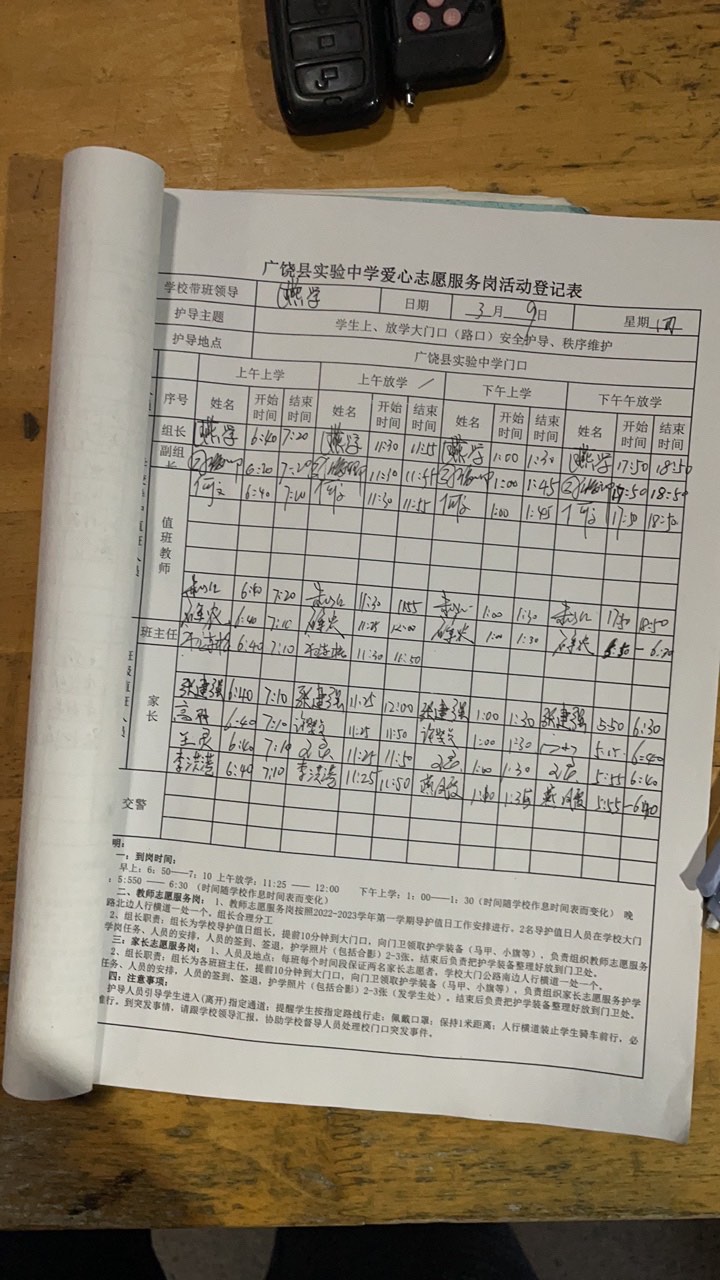 广饶县实验中学爱心志愿服务岗活动登记表
学校带班领导 燕学 日期 3月9日 星期四
护导主题 学生上、放学大门口（路口）安全护导、秩序维护
护导地点 广饶县实验中学门口
上午上学 上午放学 下午上学 下午午放学
序号 姓名 开始时间 结束时间 姓名 开始时间 结束时间 姓名 开始时间 结束时间 姓名 开始时间 结束时间
组长 燕学 6:40 7:20 燕学 11:30 11:55 燕学 1:00 1:30 燕学 17:50 18:50
副组长 6:20 7:20 11:10 11:55 1:00 1:45 17:50 18:50
值班教师 何文 6:40 7:20 何文 11:30 11:55 何文 1:00 1:45 何文 17:50 18:50
6:40 7:20 11:30 11:55 1:00 1:30 17:50 18:50
6:40 7:10 11:25 12:00 1:00 1:30 6:20
班主任 6:40 7:10 11:30 11:50
家长 张建强 6:40 7:10 张建强 11:25 12:00 张建强 1:00 1:30 张建强 5:50 6:30
6:40 7:10 11:25 11:50 1:00 1:30 6:40
王灵 6:40 7:10 11:25 11:50 1:00 1:30 5:55 6:40
李洪涛 6:40 7:10 李洪涛 11:25 11:50 燕月霞 1:00 1:35 燕月霞 5:55—6:40
交警
明：
一：到岗时间：
早上：6：50——7：10 上午放学：11:25 —— 12:00 下午上学：1：00——1：30（时间随学校作息时间表而变化） 晚
：5:550 —— 6:30 （时间随学校作息时间表而变化）
二、教师志愿服务岗： 1、教师志愿服务岗按照2022-2023学年第一学期导护值日工作安排进行，2名导护值日人员在学校大门
路北边人行横道一处一个，组长合理分工
2、组长职责：组长为学校导护值日组长，提前10分钟到大门口，向门卫领取护学装备（马甲、小旗等），负责组织教师志愿服务
学岗任务、人员的安排，人员的签到、签退，护学照片（包括合影）2-3张，结束后负责把护学装备整理好放到门卫处。
三：家长志愿服务岗： 1、人员及地点：每班每个时间段保证两名家长志愿者，学校大门公路南边人行横道一处一个。
2、组长职责：组长为各班班主任，提前10分钟到大门口，向门卫领取护学装备（马甲、小旗等），负责组织家长志愿服务护学
任务、人员的安排，人员的签到、签退，护学照片（包括合影）2-3张（发学生处），结束后负责把护学装备整理好放到门卫处。
四：注意事项：
护导人员引导学生进入（离开）指定通道；提醒学生按指定路线行走；佩戴口罩；保持1米距离；人行横道装止学生骑车前行，必
推行。到突发事情，请跟学校领导汇报，协助学校督导人员处理校门口突发事件。